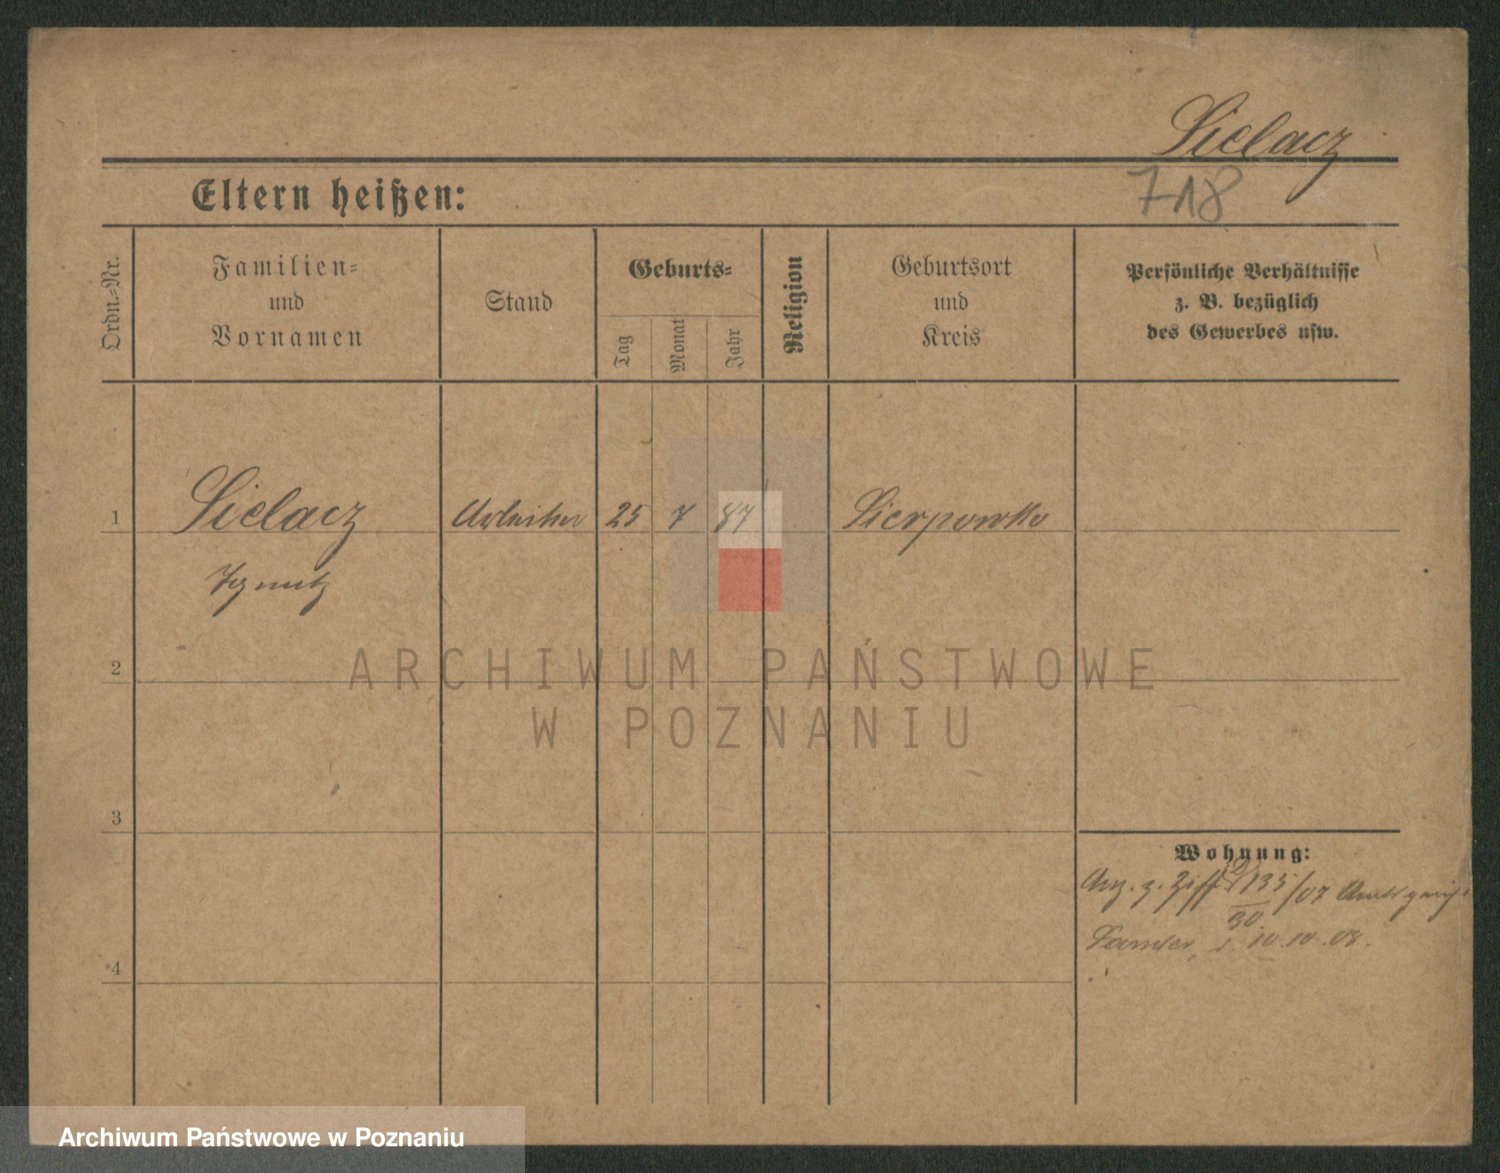 Sielacz
718
Eltern heißen:
Ordn.-Nr.
Familien-
und
Vornamen
Stand
Geburts-
Tag
Monat
Jahr
Religion
Geburtsort
und
Kreis
Persönliche Verhältnisse
z. B. bezüglich
des Gewerbes usw.
1 Sielacz Arbeiter 25 7 87 Sierpowko
Ignatz
2
3
4
ARCHIWUM PAŃSTWOWE
W POZNANIU
Wohnung:
Anz. z. Ziff 135/07
30
Samter, 10.10.08.
Archiwum Państwowe w Poznaniu